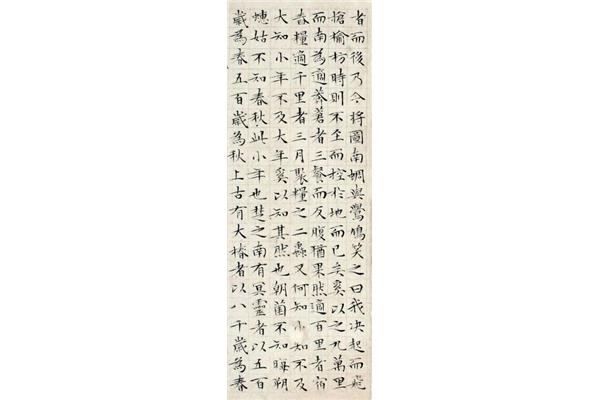 者而後乃今將圖南蜩與鷽鳩笑之曰我決起而飛
搶榆枋時則不至而控於地而已矣奚以之九萬里
而南為適莽蒼者三餐而反腹猶果然適百里者宿
舂糧適千里者三月聚糧之二蟲又何知小知不及
大知小年不及大年奚以知其然也朝菌不知晦朔
蟪蛄不知春秋此小年也楚之南有冥靈者以五百
歲為春五百歲為秋上古有大椿者以八千歲為春